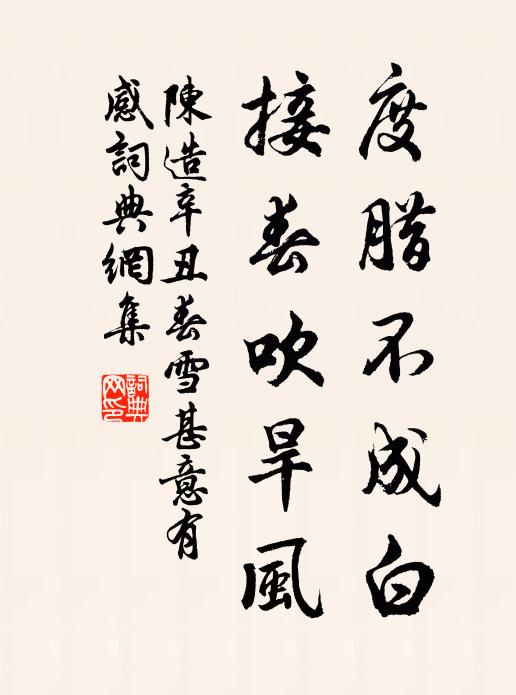 度腊不成白
接春吹旱風
陳造辛丑春雪甚意有
感詞典網集
詞典網印